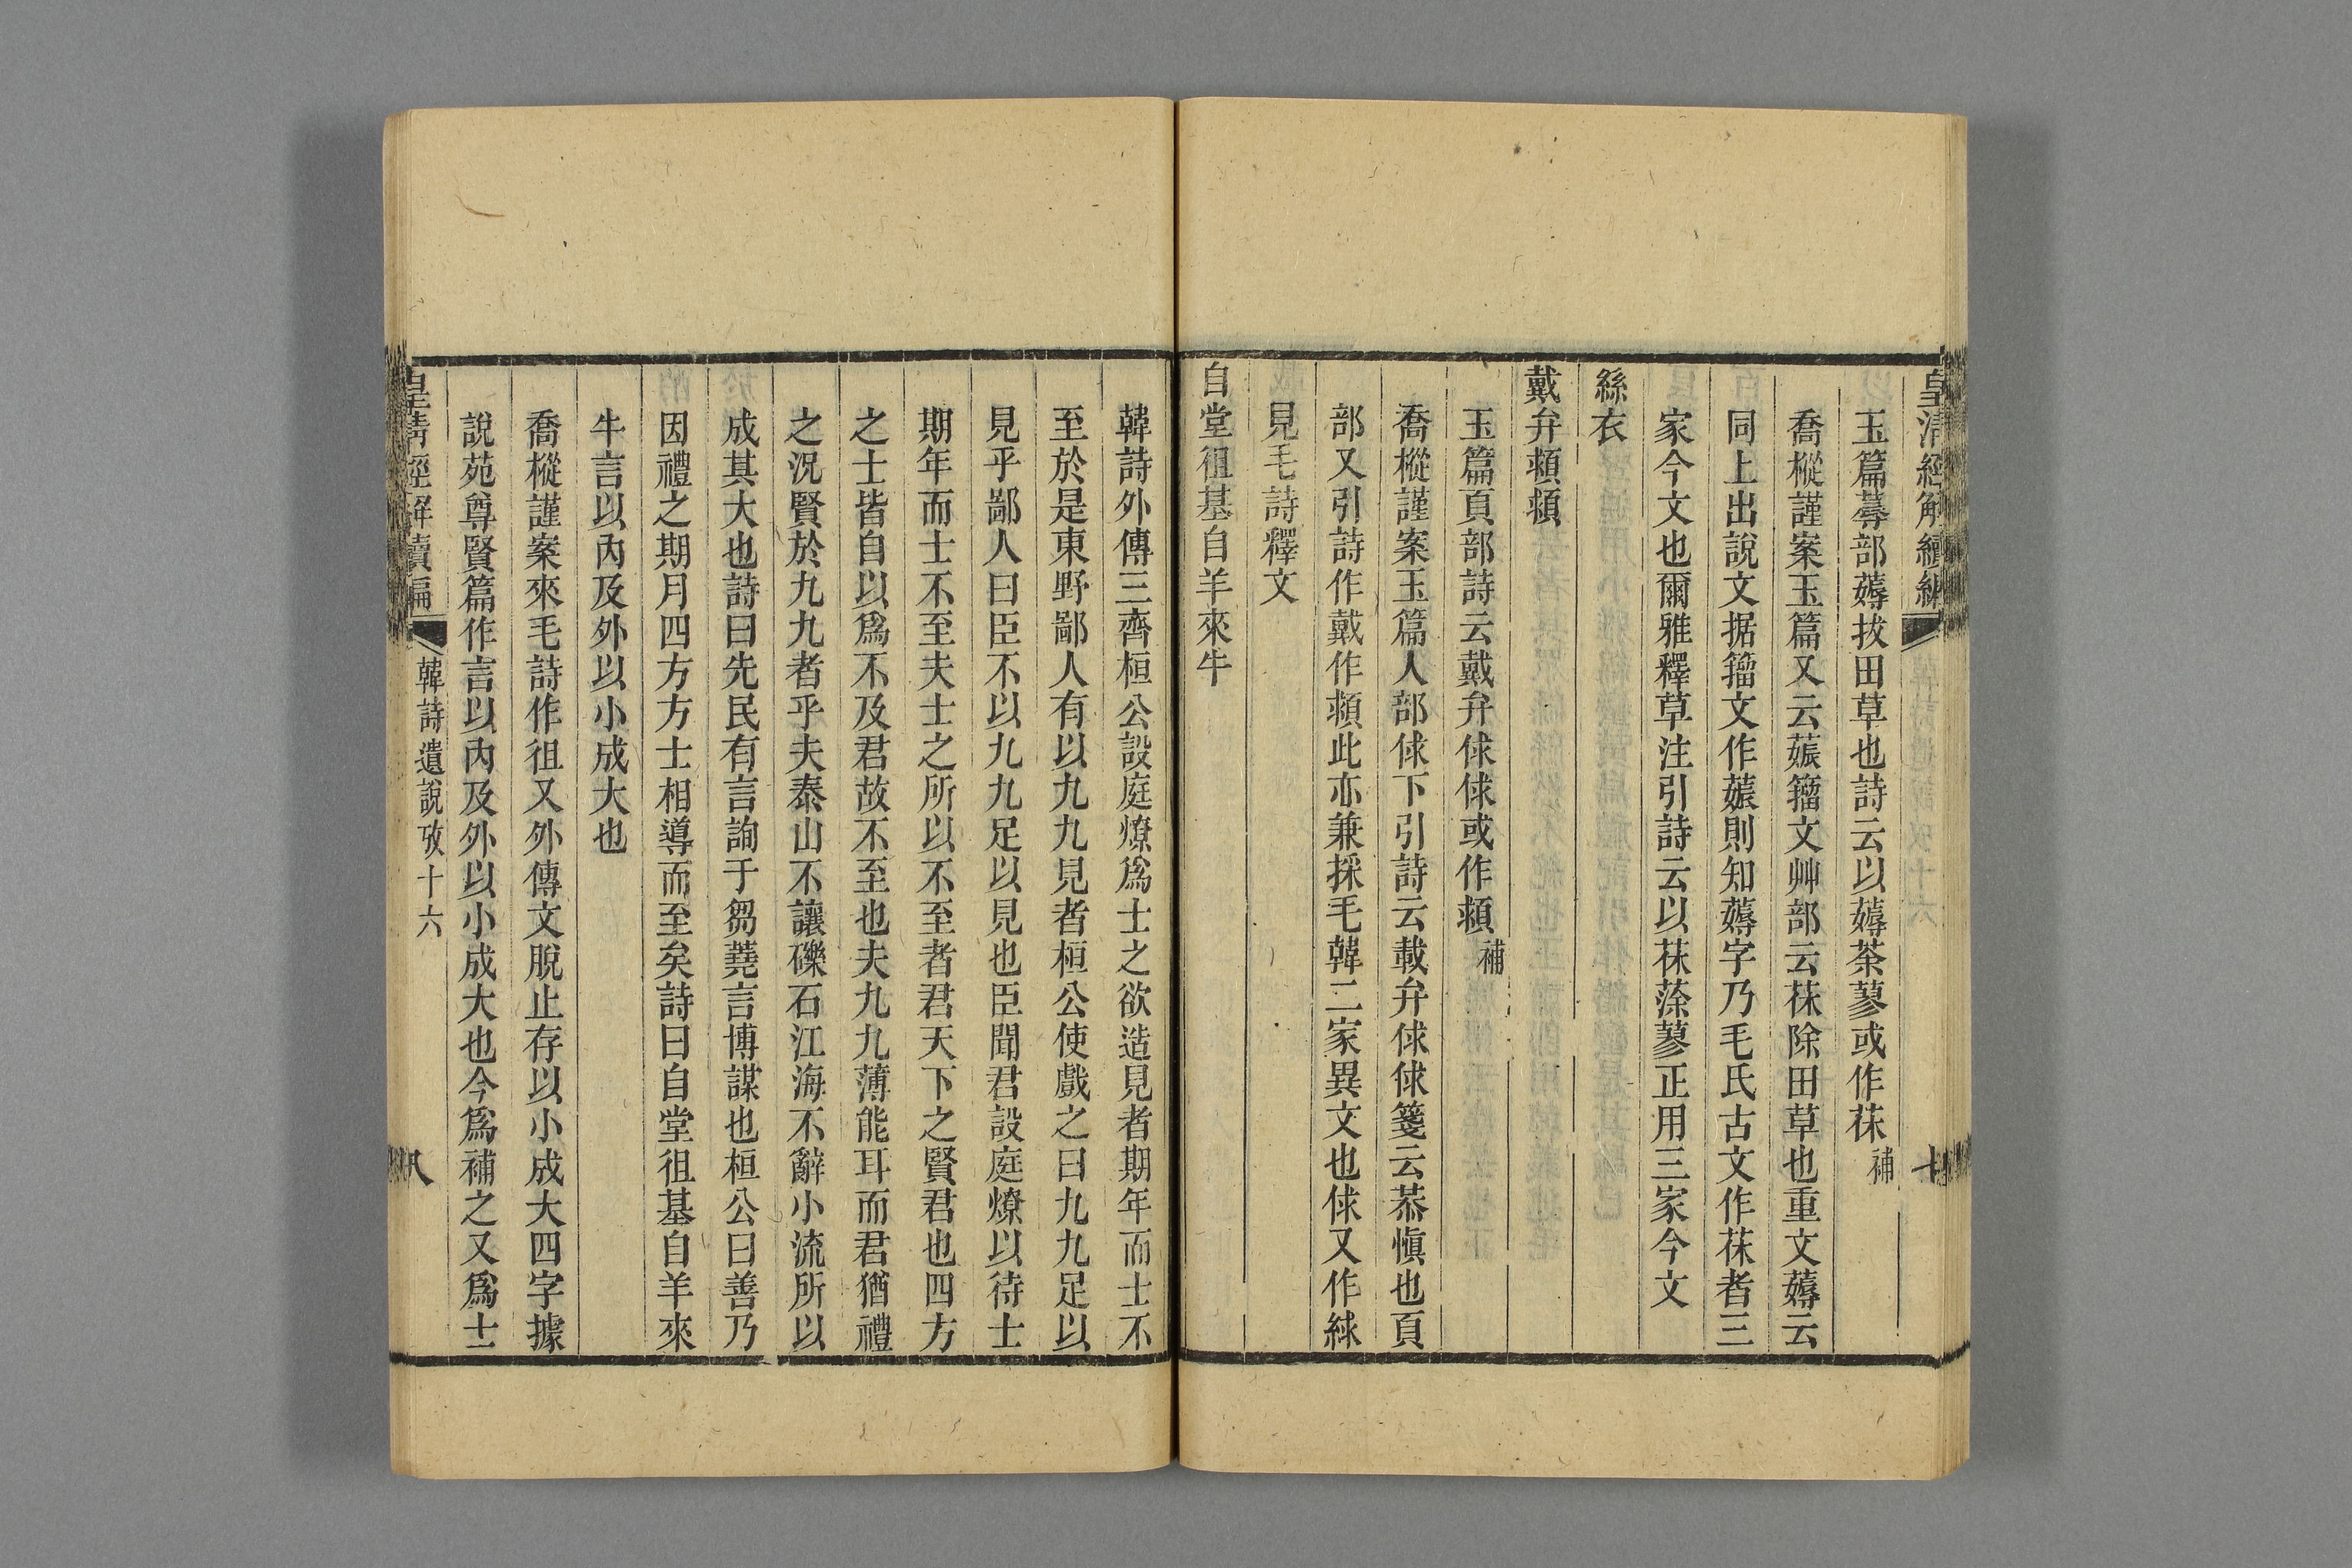 皇清經解續編
玉篇蓐部薅拔田草也詩云以薅荼蓼或作茠補
喬樅謹案玉篇又云薅籀文艸部云茠除田草也重文薅云
同上出說文据籀文作薅則知薅字乃毛氏古文作茠者三
家今文也爾雅釋草注引詩云以茠蒤蓼正用三家今文
絲衣
戴弁頯頯
玉篇頁部詩云戴弁俅俅或作頯補
喬樅謹案玉篇人部俅下引詩云載弁俅俅箋云恭愼也頁
部又引詩作戴作頯此亦兼採毛韓二家異文也俅又作絿
見毛詩釋文
自堂徂基自羊來牛
韓詩外傳三齊桓公設庭燎爲士之欲造見者期年而士不
至於是東野鄙人有以九九見者桓公使戲之曰九九足以
見乎鄙人曰臣不以九九足以見也臣聞君設庭燎以待士
期年而士不至夫士之所以不至者君天下之賢君也四方
之士皆自以爲不及君故不至也夫九九薄能耳而君猶禮
之況賢於九九者乎夫泰山不讓礫石江海不辭小流所以
成其大也詩曰先民有言詢于芻蕘言博謀也桓公曰善乃
因禮之期月四方方士相導而至矣詩曰自堂徂基自羊來
牛言以內及外以小成大也
喬樅謹案來毛詩作徂又外傳文脫止存以小成大四字據
說苑尊賢篇作言以內及外以小成大也今爲補之又爲士
皇清經解續編
韓詩遺說攷十六
八